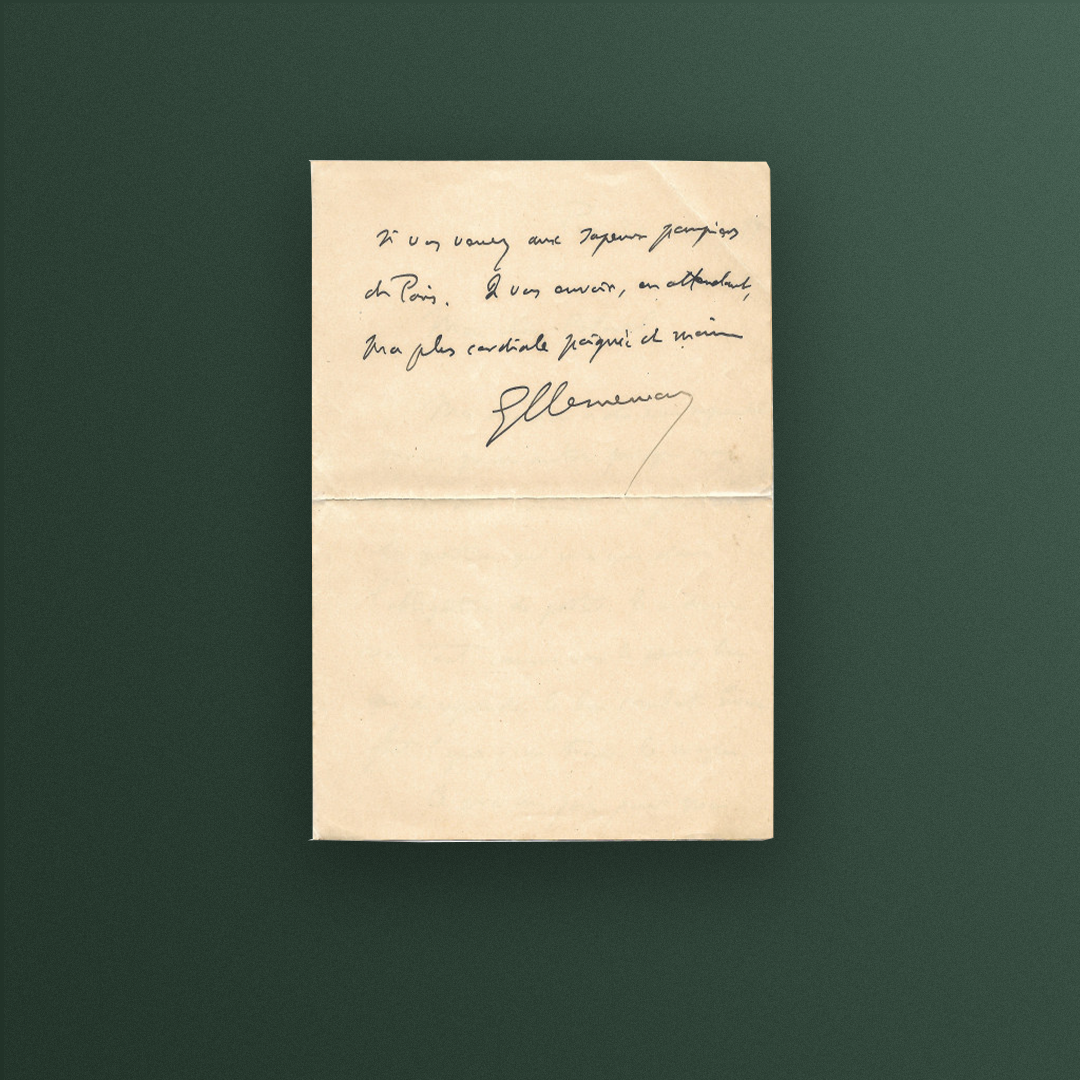 si vous venez aux sapeurs pompiers
de Paris. Je vous envoie, en attendant,
ma plus cordiale poignée de main
GClemenceau